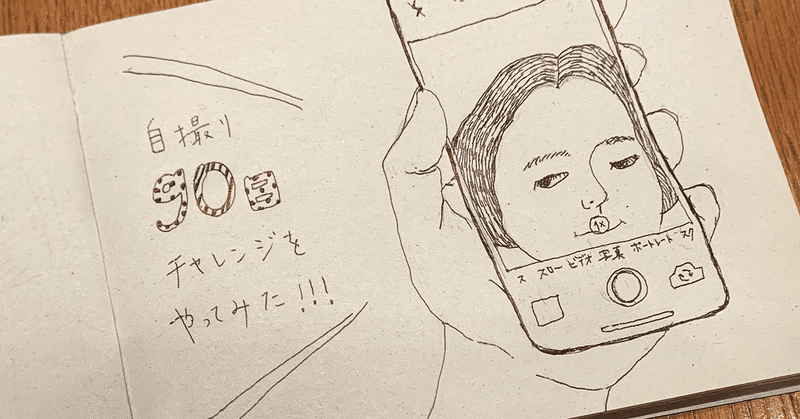 自撮り
90日
チャレンジを
やってみた!!!
1x
ス スロー ビデオ 写真 ポートレート スク